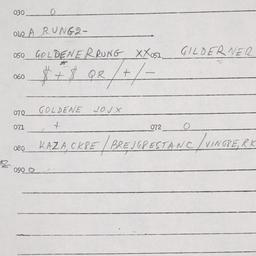 090 0
040 A RUNG2-
050 GOLDENERRUNG XX 051 GILDERNER
060 $ + $ QR / + / -
070 GOLDENE JOJX
071 + 072 0
080 KAZA,CKPE / BREJGPESTANC / VINGPE,RK
090 0